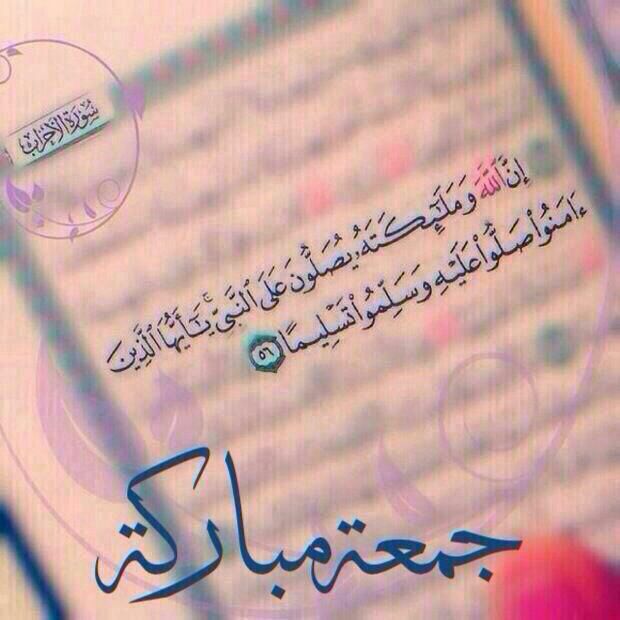 سُورَةُ الأَحْزَابِ
إِنَّ ٱللَّهَ وَمَلَٰٓئِكَتَهُۥ يُصَلُّونَ عَلَى ٱلنَّبِىِّ ۚ يَٰٓأَيُّهَا ٱلَّذِينَ
ءَامَنُوا۟ صَلُّوا۟ عَلَيْهِ وَسَلِّمُوا۟ تَسْلِيمًا ٥٦
جمعة مباركة